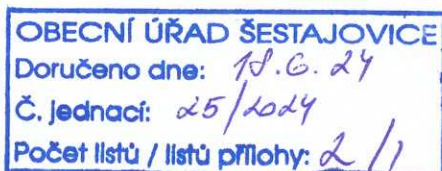 OBECNÍ ÚŘAD ŠESTAJOVICE
Doručeno dne: 18.6.24
Č. jednací: 25/2024
Počet listů / listů přílohy: 2/1